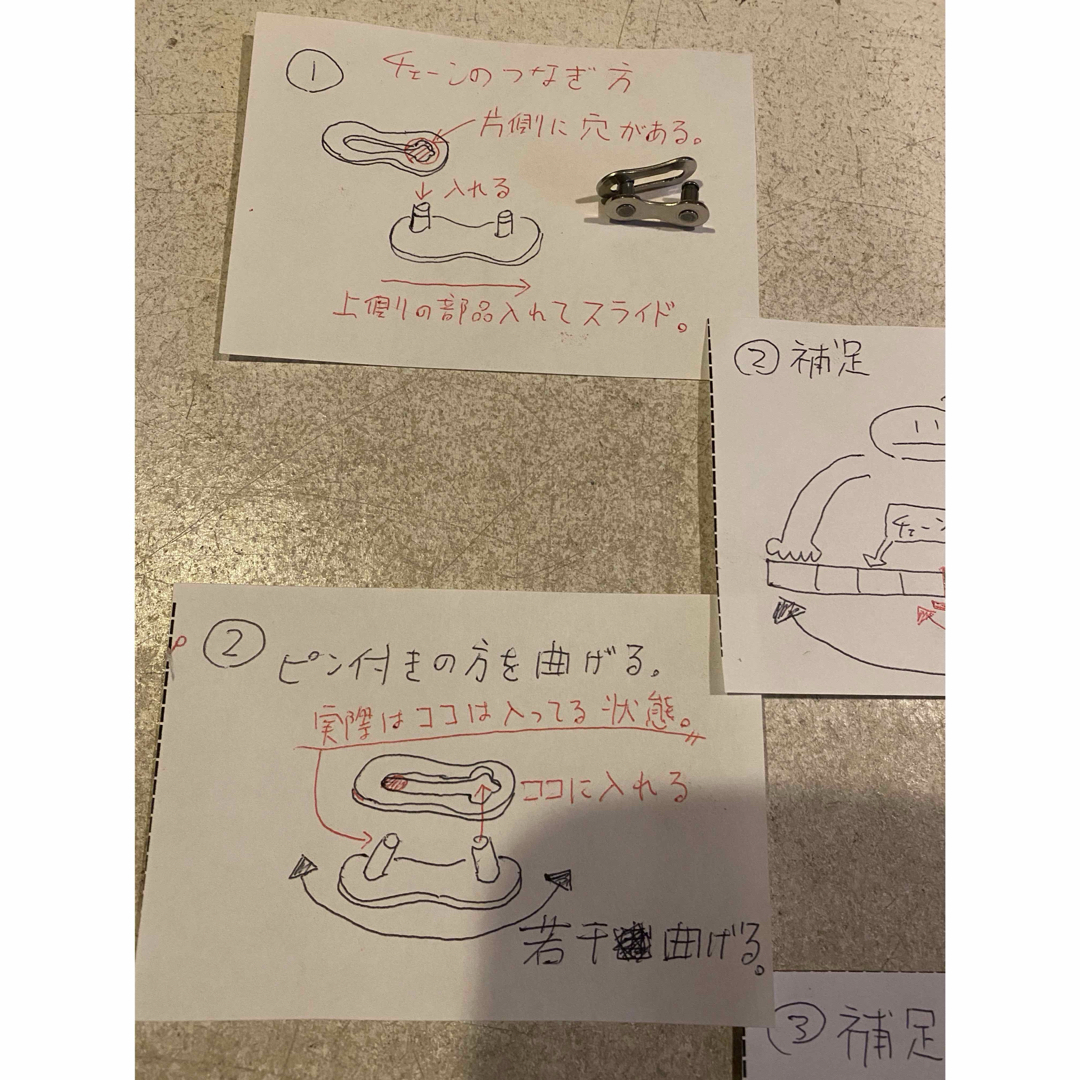 ① チェーンのつなぎ方
片側に穴がある。
入れる
上側の部品入れてスライド。
② 補足
チェーン
② ピン付きの方を曲げる。
実際はココは入ってる状態。
ココに入れる
若干曲げる。
③ 補足